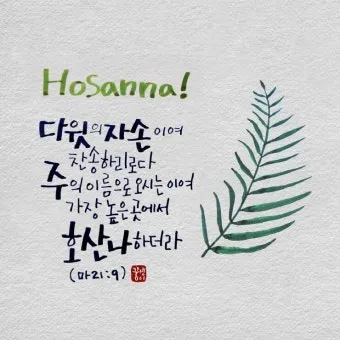 Hosanna!
다윗의 자손이여
찬송하리로다
주의 이름으로 오시는 이여
가장 높은 곳에서
호산나 하더라
(마21:9)